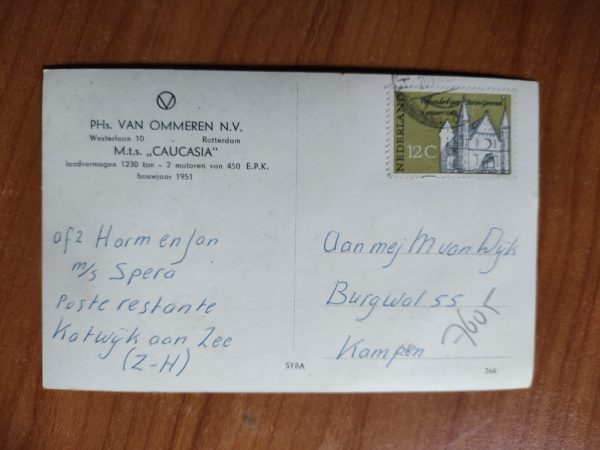 PHs. VAN OMMEREN N.V.
Westerlaan 10 - Rotterdam
M.t.s. „CAUCASIA"
laadvermogen 1230 ton - 2 motoren van 450 E.P.K.
bouwjaar 1951
NEDERLAND
12 C
afz Harmen Jan
m/s Spera
Poste restante
Katwijk aan Zee
(Z-H)
Aan mej M van Dijk
Burgwal 55
Kampen
SYBA
264